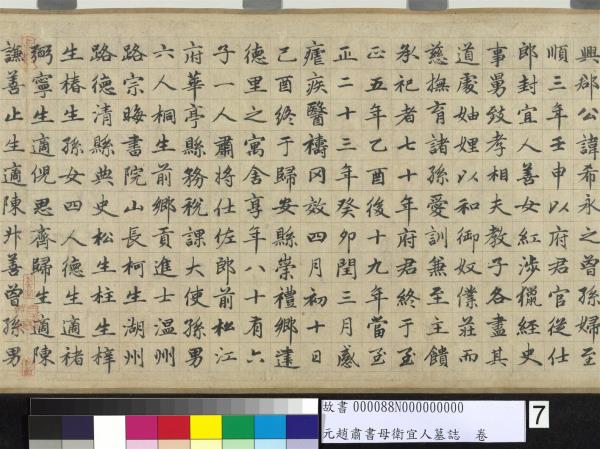 興郡公諱希永之曾孫婦至
順三年壬申以府君官從仕
郎封宜人善女紅涉獵經史
事舅姑孝相夫教子各盡其
道處妯娌以和御奴僕莊而
慈撫育諸孫愛訓兼至主饋
承祀者七十年府君終于至
正五年乙酉後十九年當至
正二十三年癸卯閏三月感
瘧疾醫禱罔效四月初十日
己酉終于歸安縣崇禮鄉遠
德里之寓舍享年八十有六
子一人肅將仕佐郎前松江
府華亭縣務稅課大使孫男
六人桐生前鄉貢進士溫州
路宗晦書院山長柯生湖州
路德清縣典史松生柱生梓
生椿生孫女四人德生適褚
弼寧生適倪思齊歸生適陳
謙善止生適陳舛善曾孫男
故書 000088N000000000
7
元趙肅書母衛宜人墓誌 卷